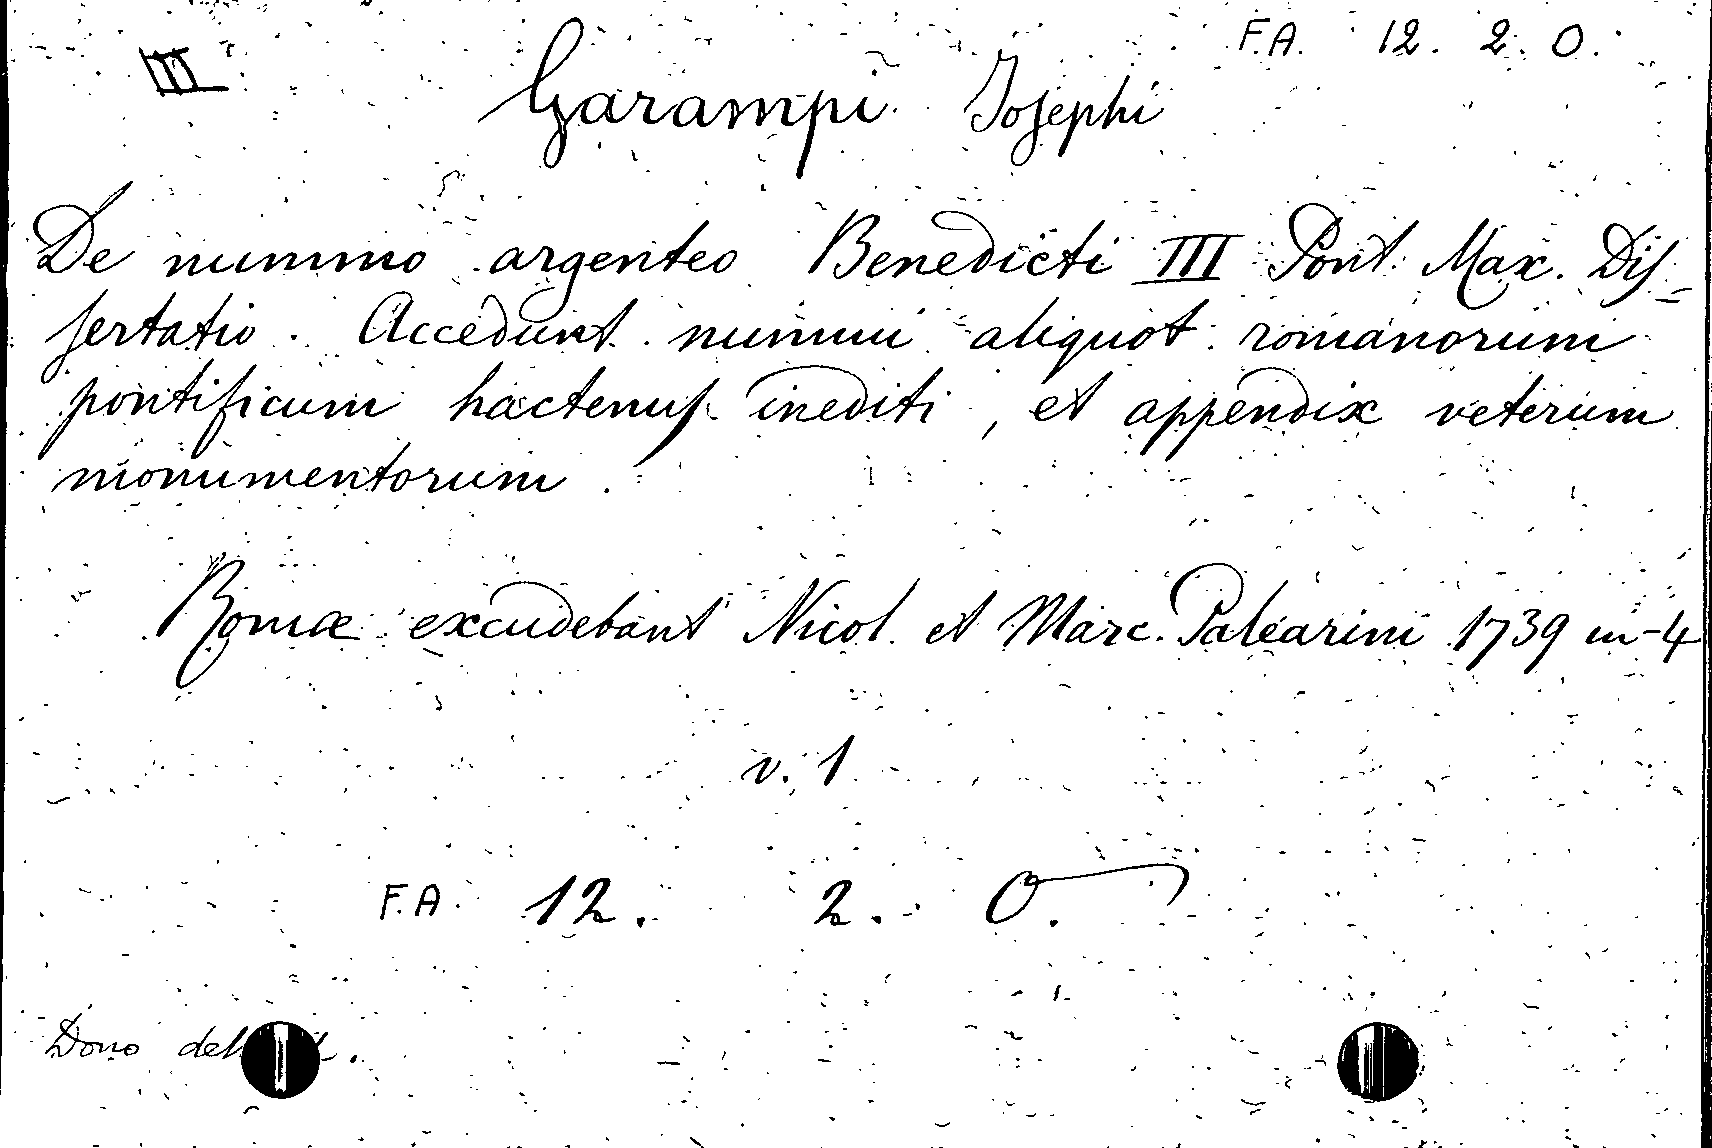 F.A. 12. 2. O.
III
Garampi Josephi
De nummo argenteo Benedicti III Pont. Max. Dis-
sertatio. Accedunt nummi aliquot romanorum
pontificum hactenus inediti, et appendix veterum
monumentorum.
Romæ excudebant Nicol. et Marc. Palearini 1739 in-4
v. 1
F.A. 12. 2. O.
Dono